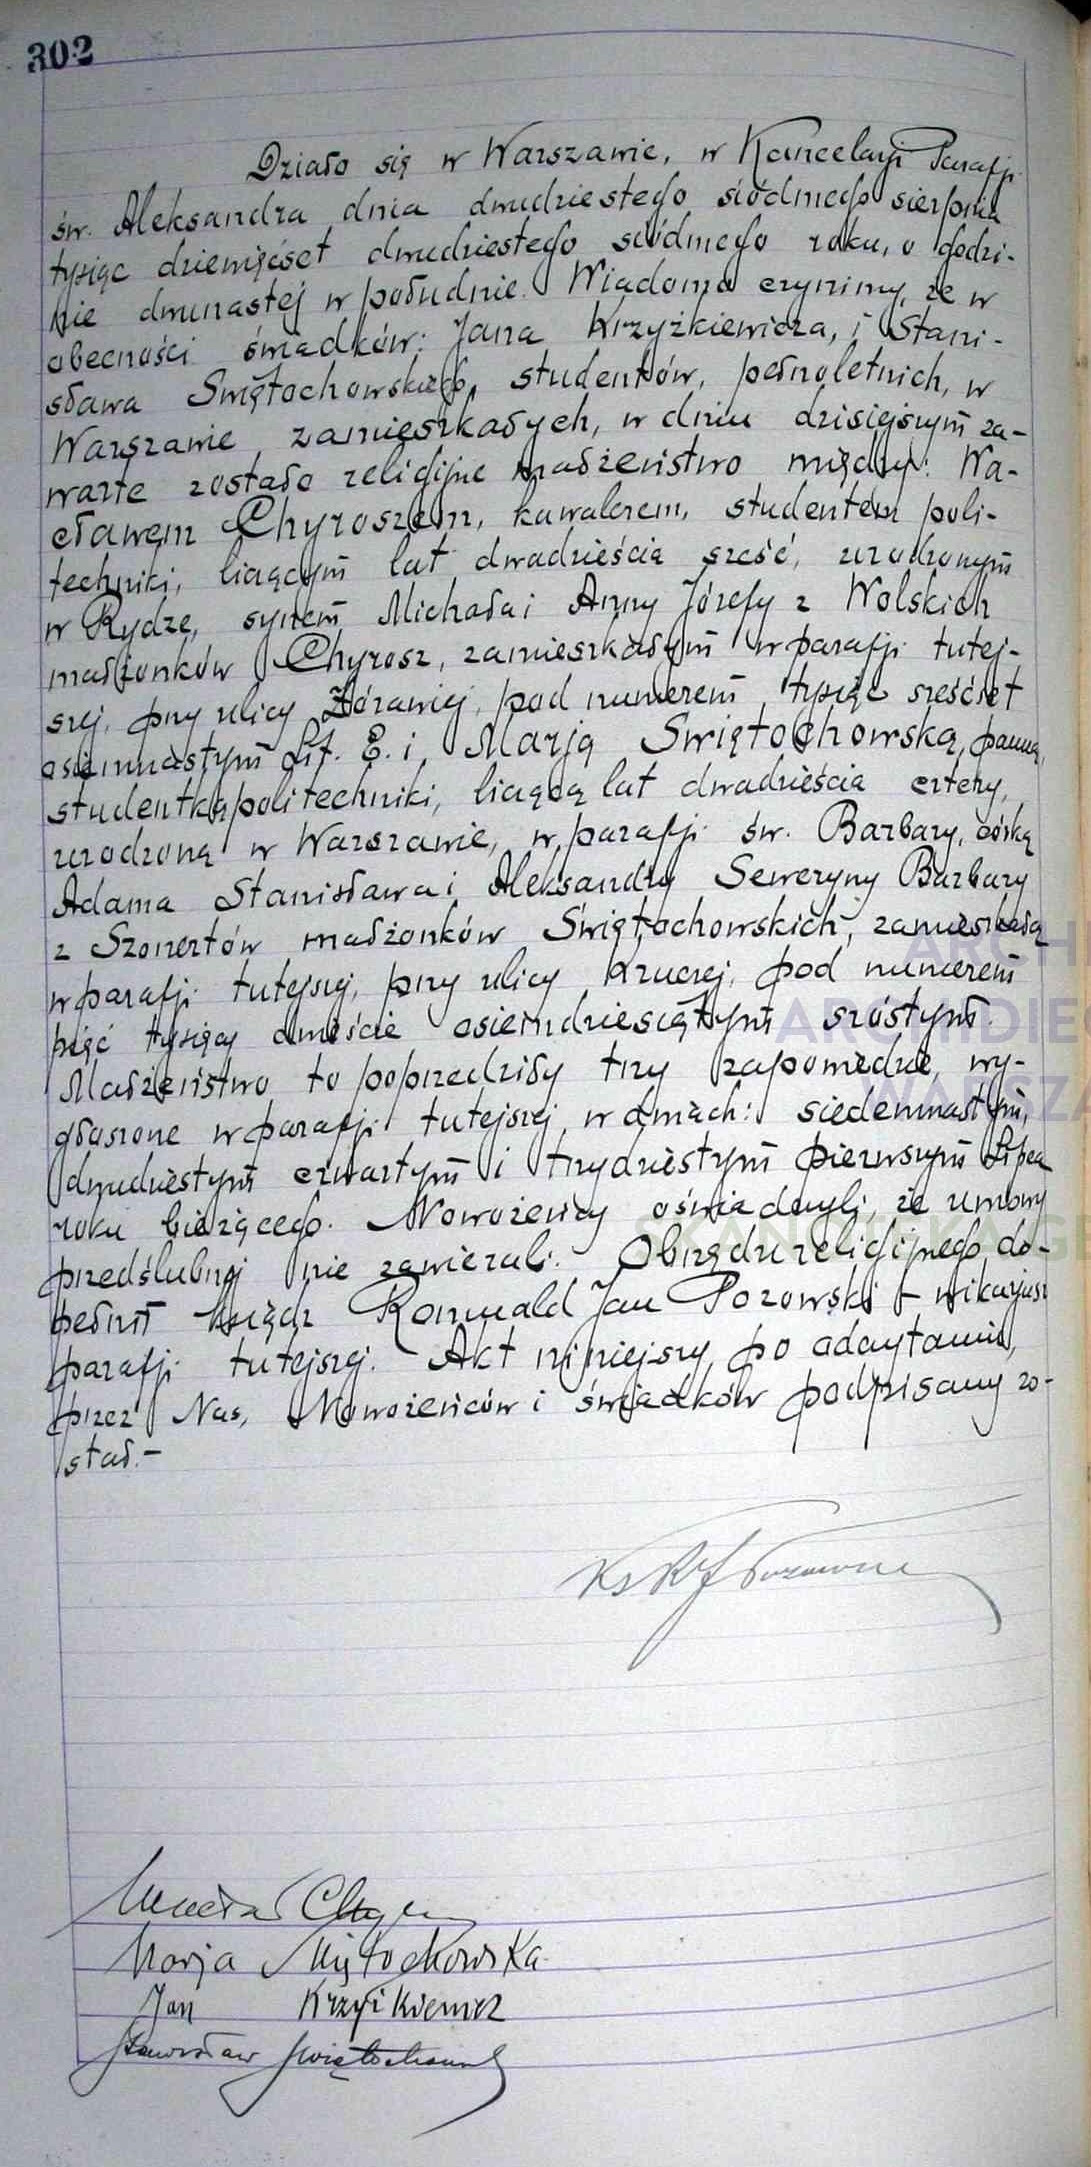 302
Działo się w Warszawie, w Kancelarji Parafji
św. Aleksandra dnia dwudziestego siódmego sierpnia
tysiąc dziewięćset dwudziestego siódmego roku, o godzi-
nie dwunastej w południe. Wiadomo czynimy, że w
obecności świadków: Jana Krzyżkiewicza, i Stani-
sława Świętochowskiego, studentów, pełnoletnich, w
Warszawie zamieszkałych, w dniu dzisiejszym za-
warte zostało religijne małżeństwo między: Wa-
cławem Chyroszem, kawalerem, studentem poli-
techniki, liczącym lat dwadzieścia sześć, urodzonym
w Rydze, synem Michała i Anny Józefy z Wolskich
małżonków Chyrosz, zamieszkałym w parafji tutej-
szej, przy ulicy Żórawiej, pod numerem tysiąc sześćset
osiemnastym Lit. E. i Marją Świętochowską, panną,
studentką politechniki, liczącą lat dwadzieścia cztery,
urodzoną w Warszawie, w parafji św. Barbary, córką
Adama Stanisława i Aleksandry Seweryny Barbary
z Szonertów małżonków Świętochowskich, zamieszkałą
w parafji tutejszej, przy ulicy Kruczej, pod numerem
pięć tysięcy dwieście osiemdziesiątym szóstym.
Małżeństwo to poprzedziły trzy zapowiedzie, wy-
głoszone w parafji tutejszej w dniach: siedemnastym,
dwudziestym czwartym i trzydziestym pierwszym Lipca
roku bieżącego. Nowożeńcy oświadczyli, że umowy
przedślubnej nie zawierali. Obrzędu religijnego do-
pełnił ksiądz Romuald Jan Pozowski - wikarjusz
parafji tutejszej. Akt niniejszy, po odczytaniu,
przez Nas, Nowożeńców i świadków podpisany zo-
stał.-
Ks R J
Wacław Chyrosz
Marja Świętochowska
Jan Krzyżkiewicz
Stanisław Świętochowski